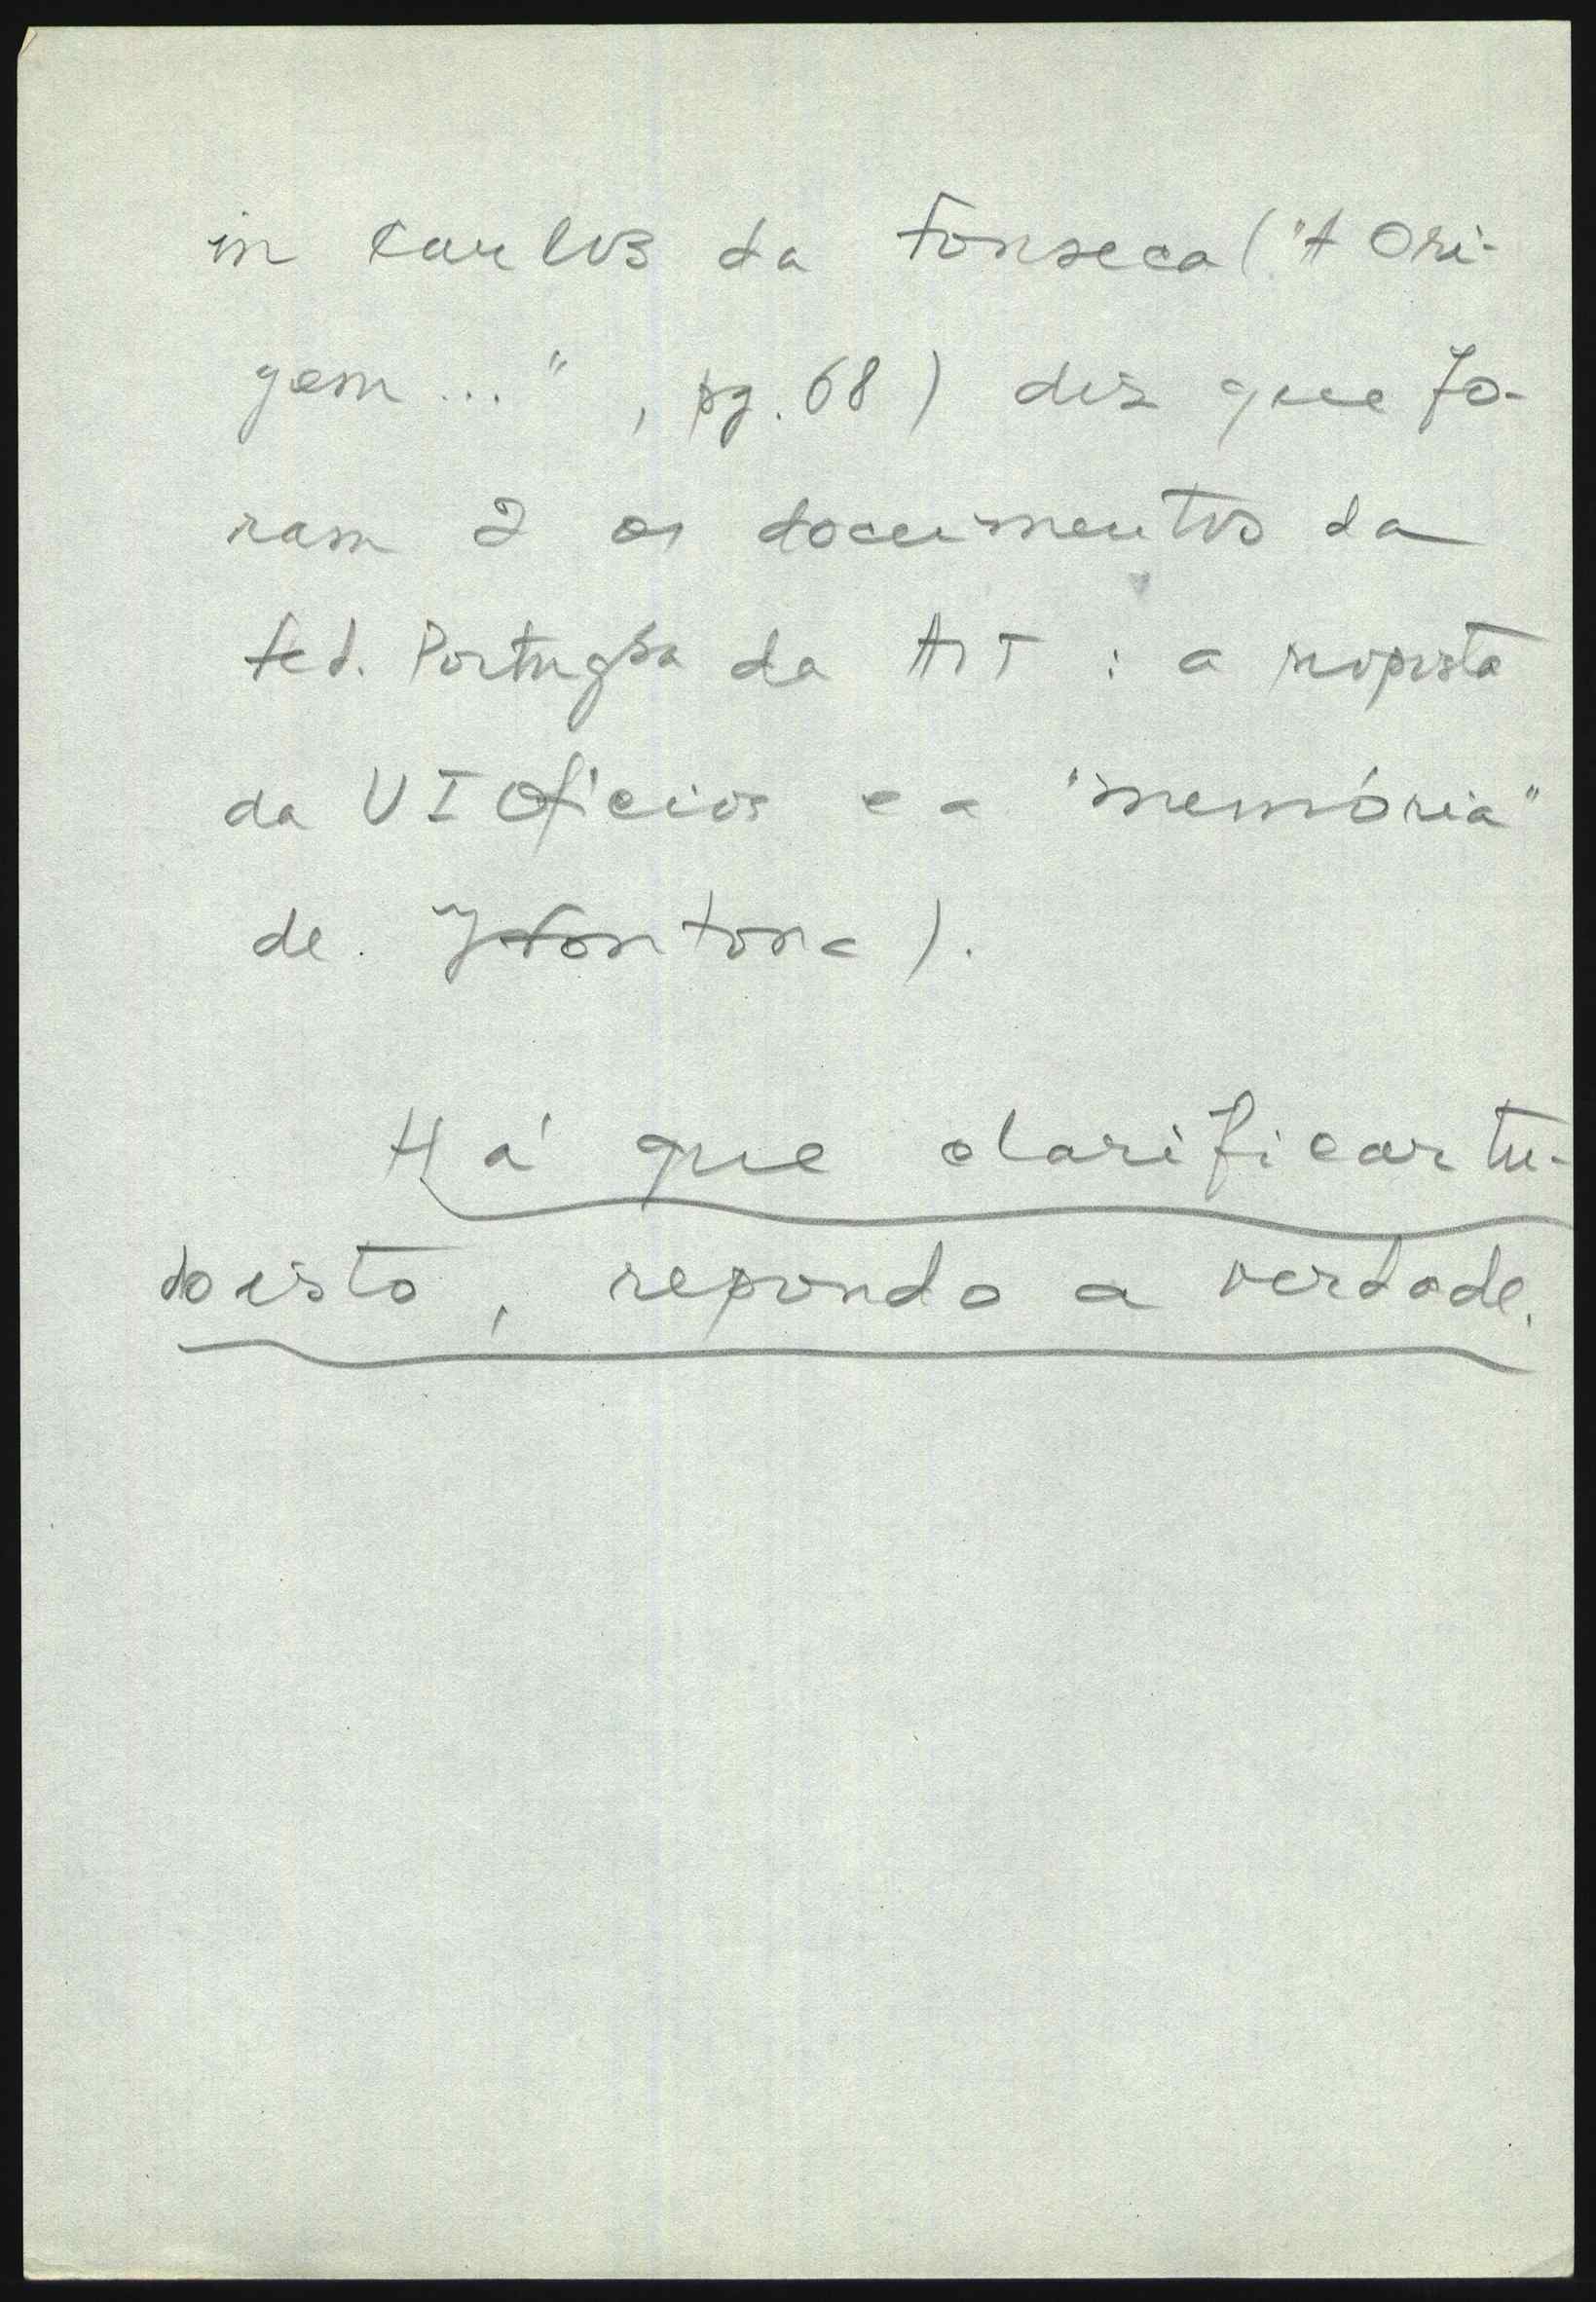 in Carlos da Fonseca ("A Ori-
gem ...", pg. 68) diz que fo-
ram 2 os documentos da
Fed. Portugsa da AIT : a resposta
da U I Ofícios e a "memória"
de J Fontona ).
Há que clarificar tu-
do isto, repondo a verdade.